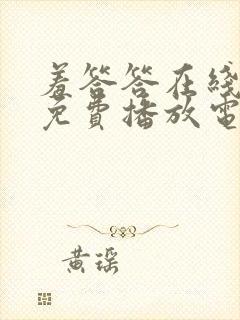 羞答答在线
免费播放电
黄瑶